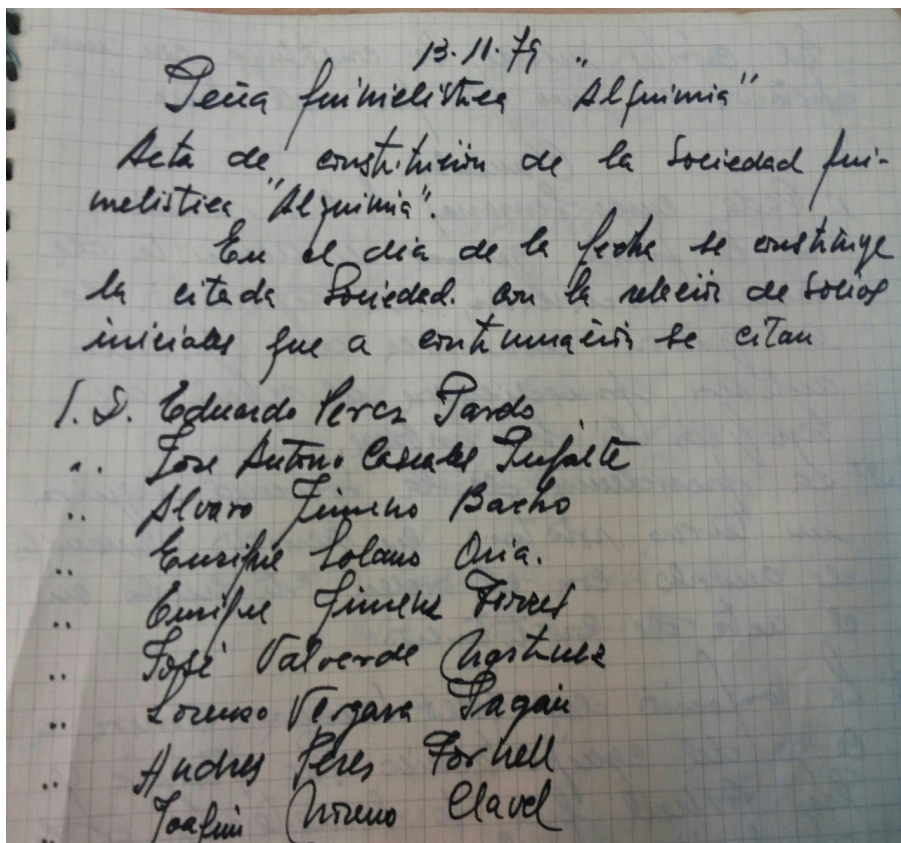 13.11.79
Peña quinielistica "Alquimia"
Acta de constitución de la Sociedad qui-
nielistica "Alquimia".
En el dia de la fecha se constituye
la citada Sociedad. con la relación de Socios
iniciales que a continuación se citan
1. D. Eduardo Perez Pardo
" Jose Antonio Cascales
" Alvaro Jimeno
" Enrique Solano Oria.
" Enrique Jimenez Torres
" José Valverde Martinez
" Lorenzo Vergara Pagán
" Andres Peres Fornell
" Joaquin Moreno Clavel